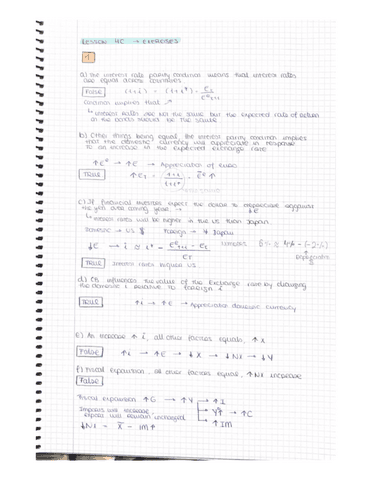 LESSON 4C → EXERCISES
1
a) The interest rate parity condition means that interest rates
are equal across countries.
FALSE (1+i) = (1+i*) · Et / Eet+1
Condition implies that
↳ interest rates are not the same but the expected rate of return
on the bonds must be the same
b) Other things being equal, the interest parity condition implies
that the domestic currency will appreciate in response
to an increase in the expected exchange rate
↑Ee → ↑E → Appreciation of euro
TRUE ↑Et = (1+i)/(1+i*) · Ee ↑
c) If financial investors expect the dollar to depreciate against
the yen over coming year → ↓E
↳ interest rates will be higher in the US than Japan.
Domestic → US $ Foreign → ¥ Japan
↓E → i ≈ i* - (Eet+1 - Et)/Et
TRUE Interest rates higher US
Depreciation
d) CB influences the value of the exchange rate by changing
the domestic i relative to foreign i
TRUE ↑i → ↑E → Appreciation domestic currency
e) An increase ↑ i, all other factors equals, ↑ X
False ↑i → ↑E → ↓X → ↓NX → ↓Y
f) Fiscal expansion, all other factors equals, ↑NX increase
False
Fiscal expansion ↑G → ↑Y → ↑I
Imports will increase, → ↑C
exports will remain unchanged → ↑IM
↓NX = X̄ - IM↑